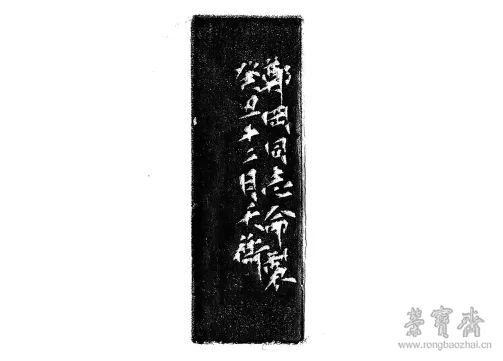 鄭岡同志命製
癸丑十二月天衡
榮寶齋
www.rongbaozhai.cn